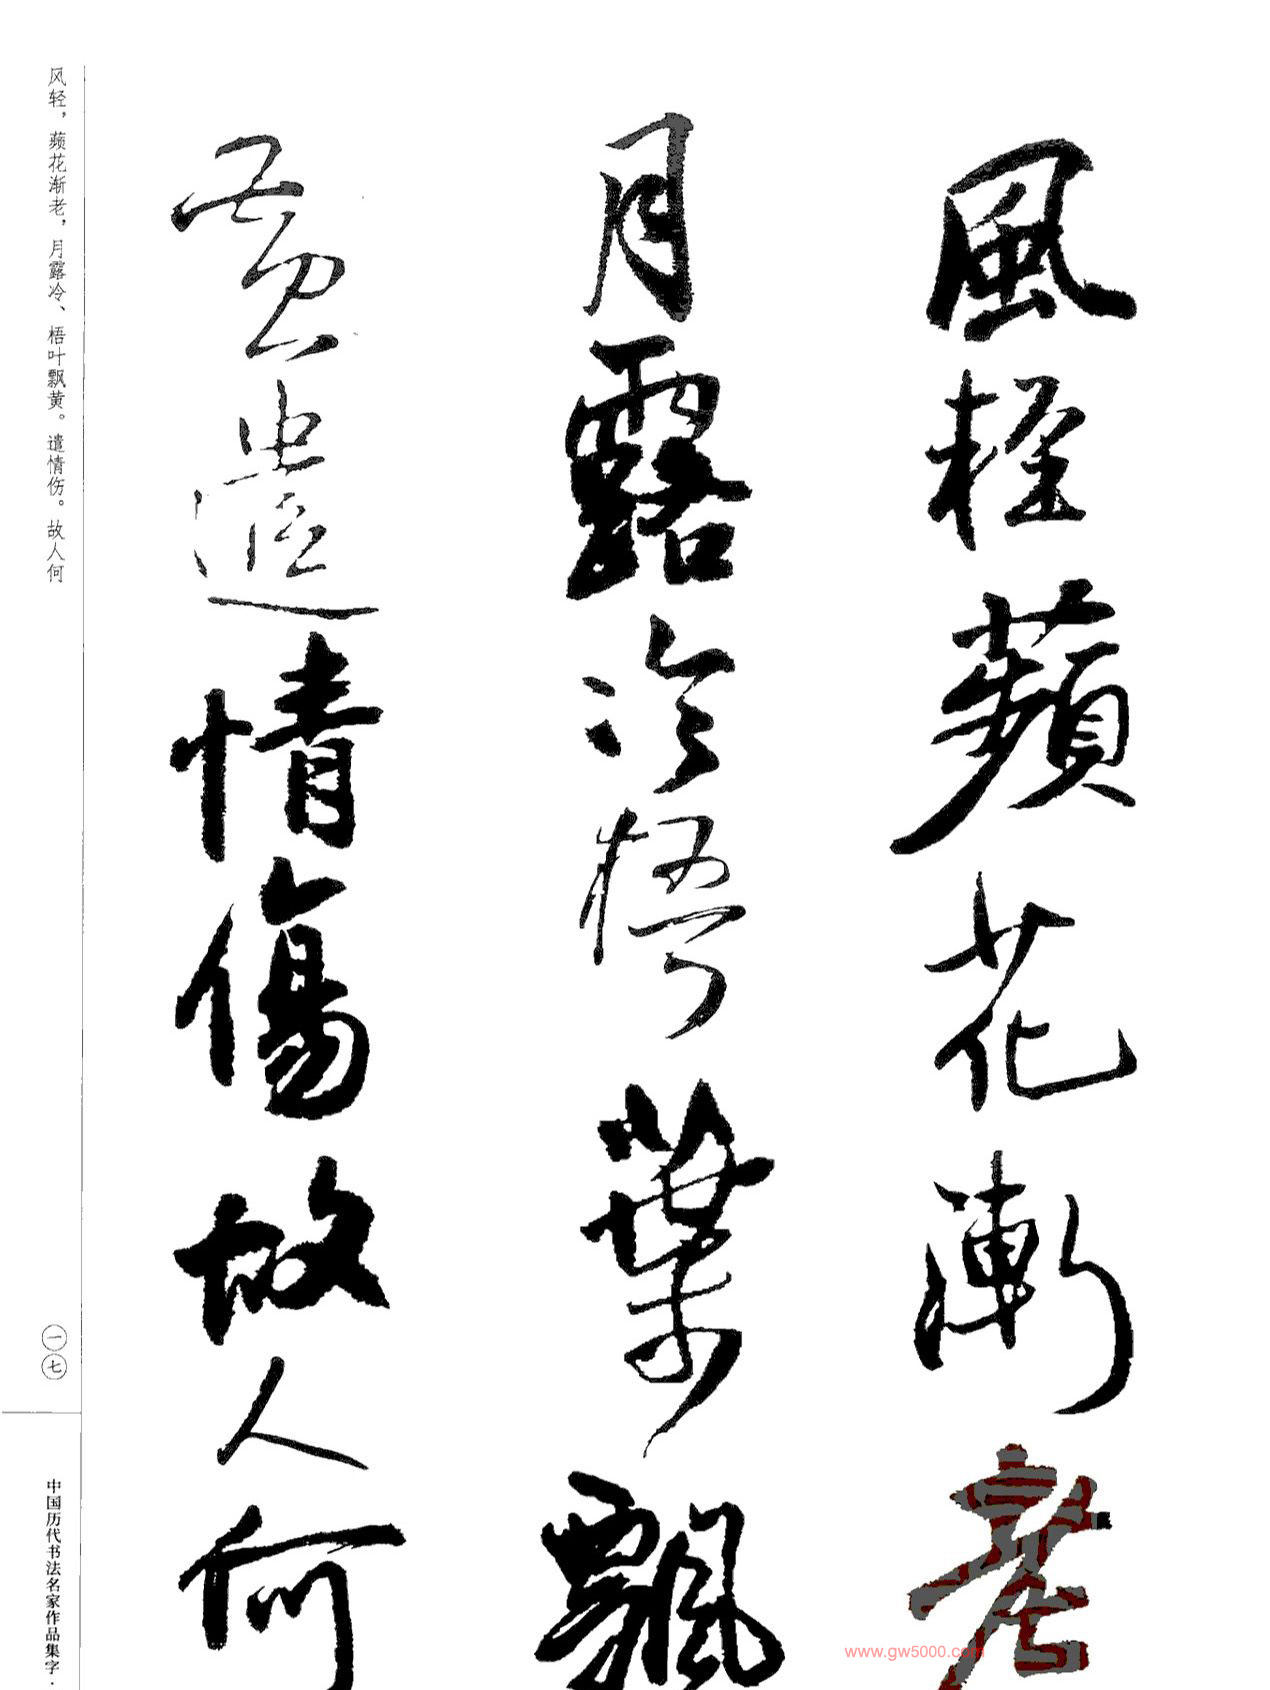 風輕蘋花漸老
月露冷梧葉飄
黄遣情傷故人何
风轻，蘋花渐老，月露冷、梧叶飘黄。遣情伤。故人何
一七
中国历代书法名家作品集字·
www.gw5000.com